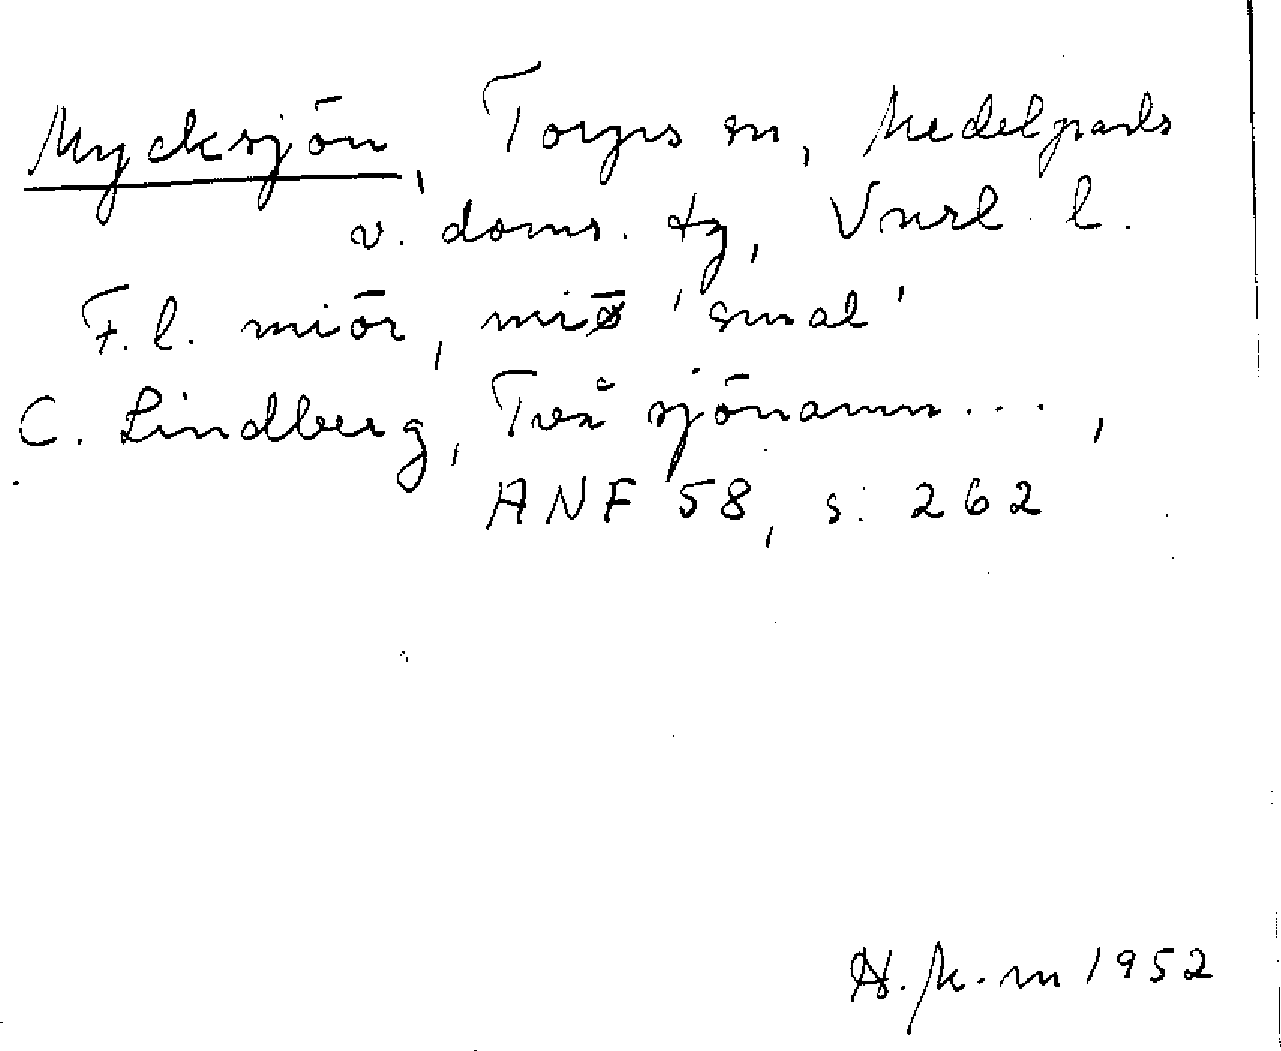 Mycksjön, Torps sn, Medelpads
v. doms. tg, Vnrl. l.
F.l. miōr, miǿ 'smal'
C. Lindberg, Två sjönamn...,
ANF 58, s. 262
1952